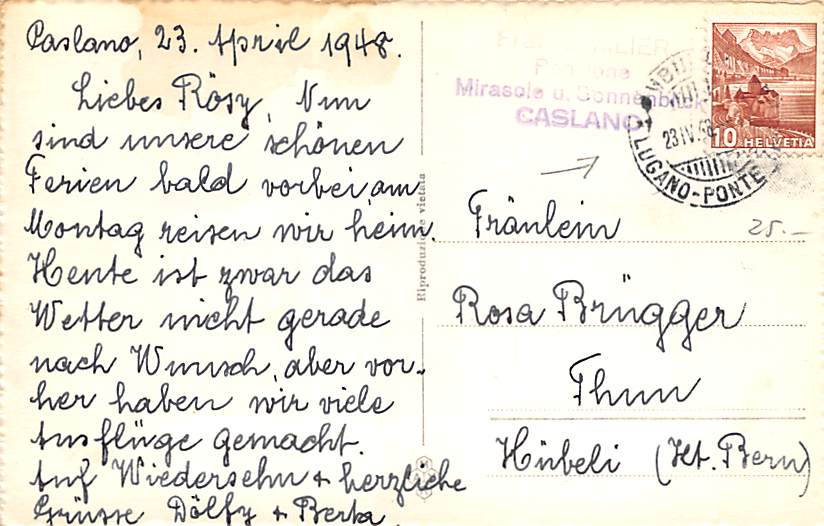 Caslano, 23. April 1948.
Liebes Rösy, Nun
sind unsere schönen
Ferien bald vorbei, am
Montag reisen wir heim.
Heute ist zwar das
Wetter nicht gerade
nach Wunsch, aber vor-
her haben wir viele
Ausflüge gemacht.
Auf Wiedersehn + herzliche
Grüsse Dölfy + Berta.
Riproduzione vietata
Pensione
Mirasole u. Sonnenblick
CASLANO
23 IV 48
LUGANO-PONTE
10 HELVETIA
25.-
Fräulein
Rosa Brügger
Thun
Hübeli (Kt. Bern)